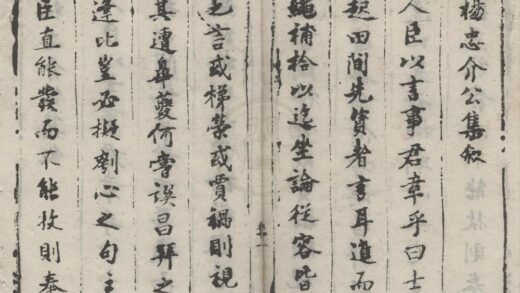 楊忠介公集敘
人臣以言事君幸乎曰士
起田間先資者言耳道而
繩補拾以迄坐論從容皆
也言或梯榮或賈禍則視
其遭皐夔何嘗設昌拜之
逢比豈必擬剖心之句主
臣直能發而不能收則奉